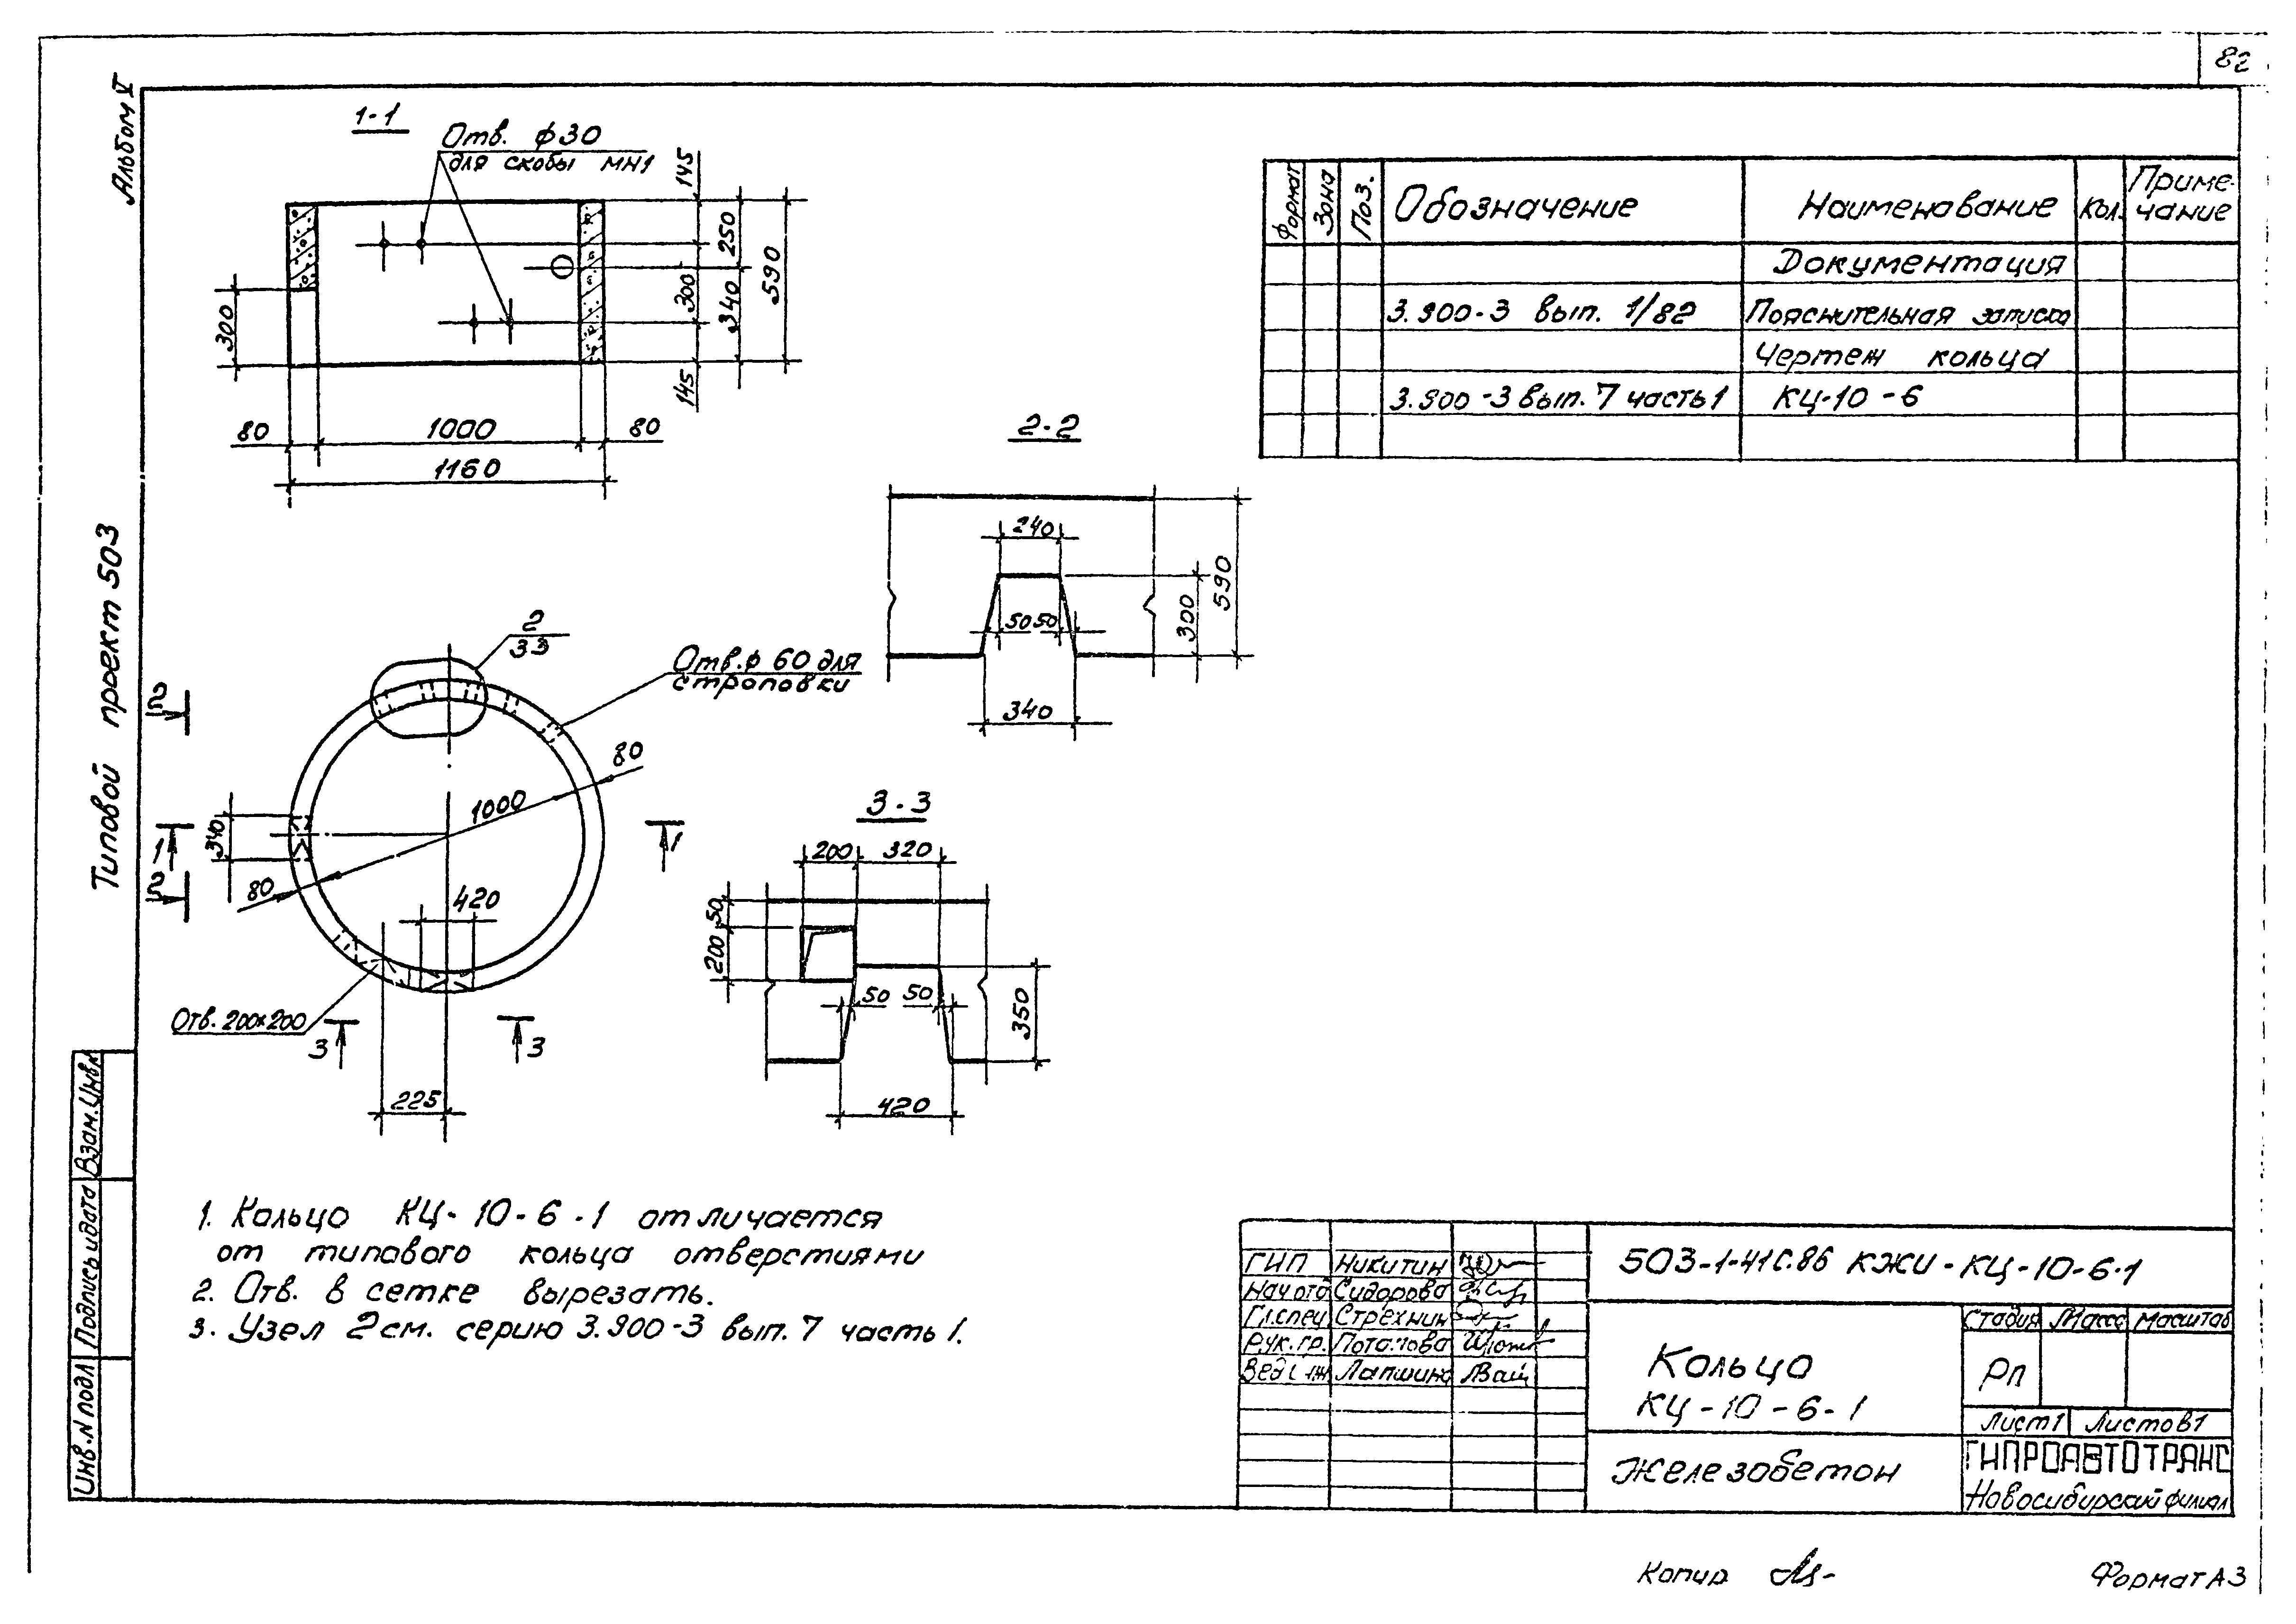 82
Альбом V
Типовой проект 503
1-1
Отв. ϕ30
для скобы МН1
145
250
590
300
340
145
300
80
1000
80
1160
Формат
Зона
Поз.
Обозначение
Наименование
Кол.
Приме-
чание
Документация
3.900-3 вып. 1/82
Пояснительная записка
Чертеж кольца
3.900-3 вып. 7 часть 1
КЦ-10-6
2-2
240
50
50
300
590
340
2
33
Отв. ϕ 60 для
строповки
2
2
1
1
340
80
1000
80
420
Отв. 200×200
3
3
225
3-3
200
320
50
200
50
50
350
420
1. Кольцо КЦ-10-6-1 отличается
от типового кольца отверстиями
2. Отв. в сетке вырезать.
3. Узел 2 см. серию 3.900-3 вып. 7 часть 1.
Взам. инв. №
Подпись и дата
Инв. N подл
ГИП Никитин
Нач отд Сидорова
Гл. спец Стрехнин
Рук. гр. Потапова
Вед. инж Лапшина
503-1-41с.86 КЖИ-КЦ-10-6-1
Кольцо
КЦ-10-6-1
Стадия Масса Масштаб
РП
Лист 1 Листов 1
Железобетон
ГИПРОАВТОТРАНС
Новосибирский филиал
Копир
Формат А3